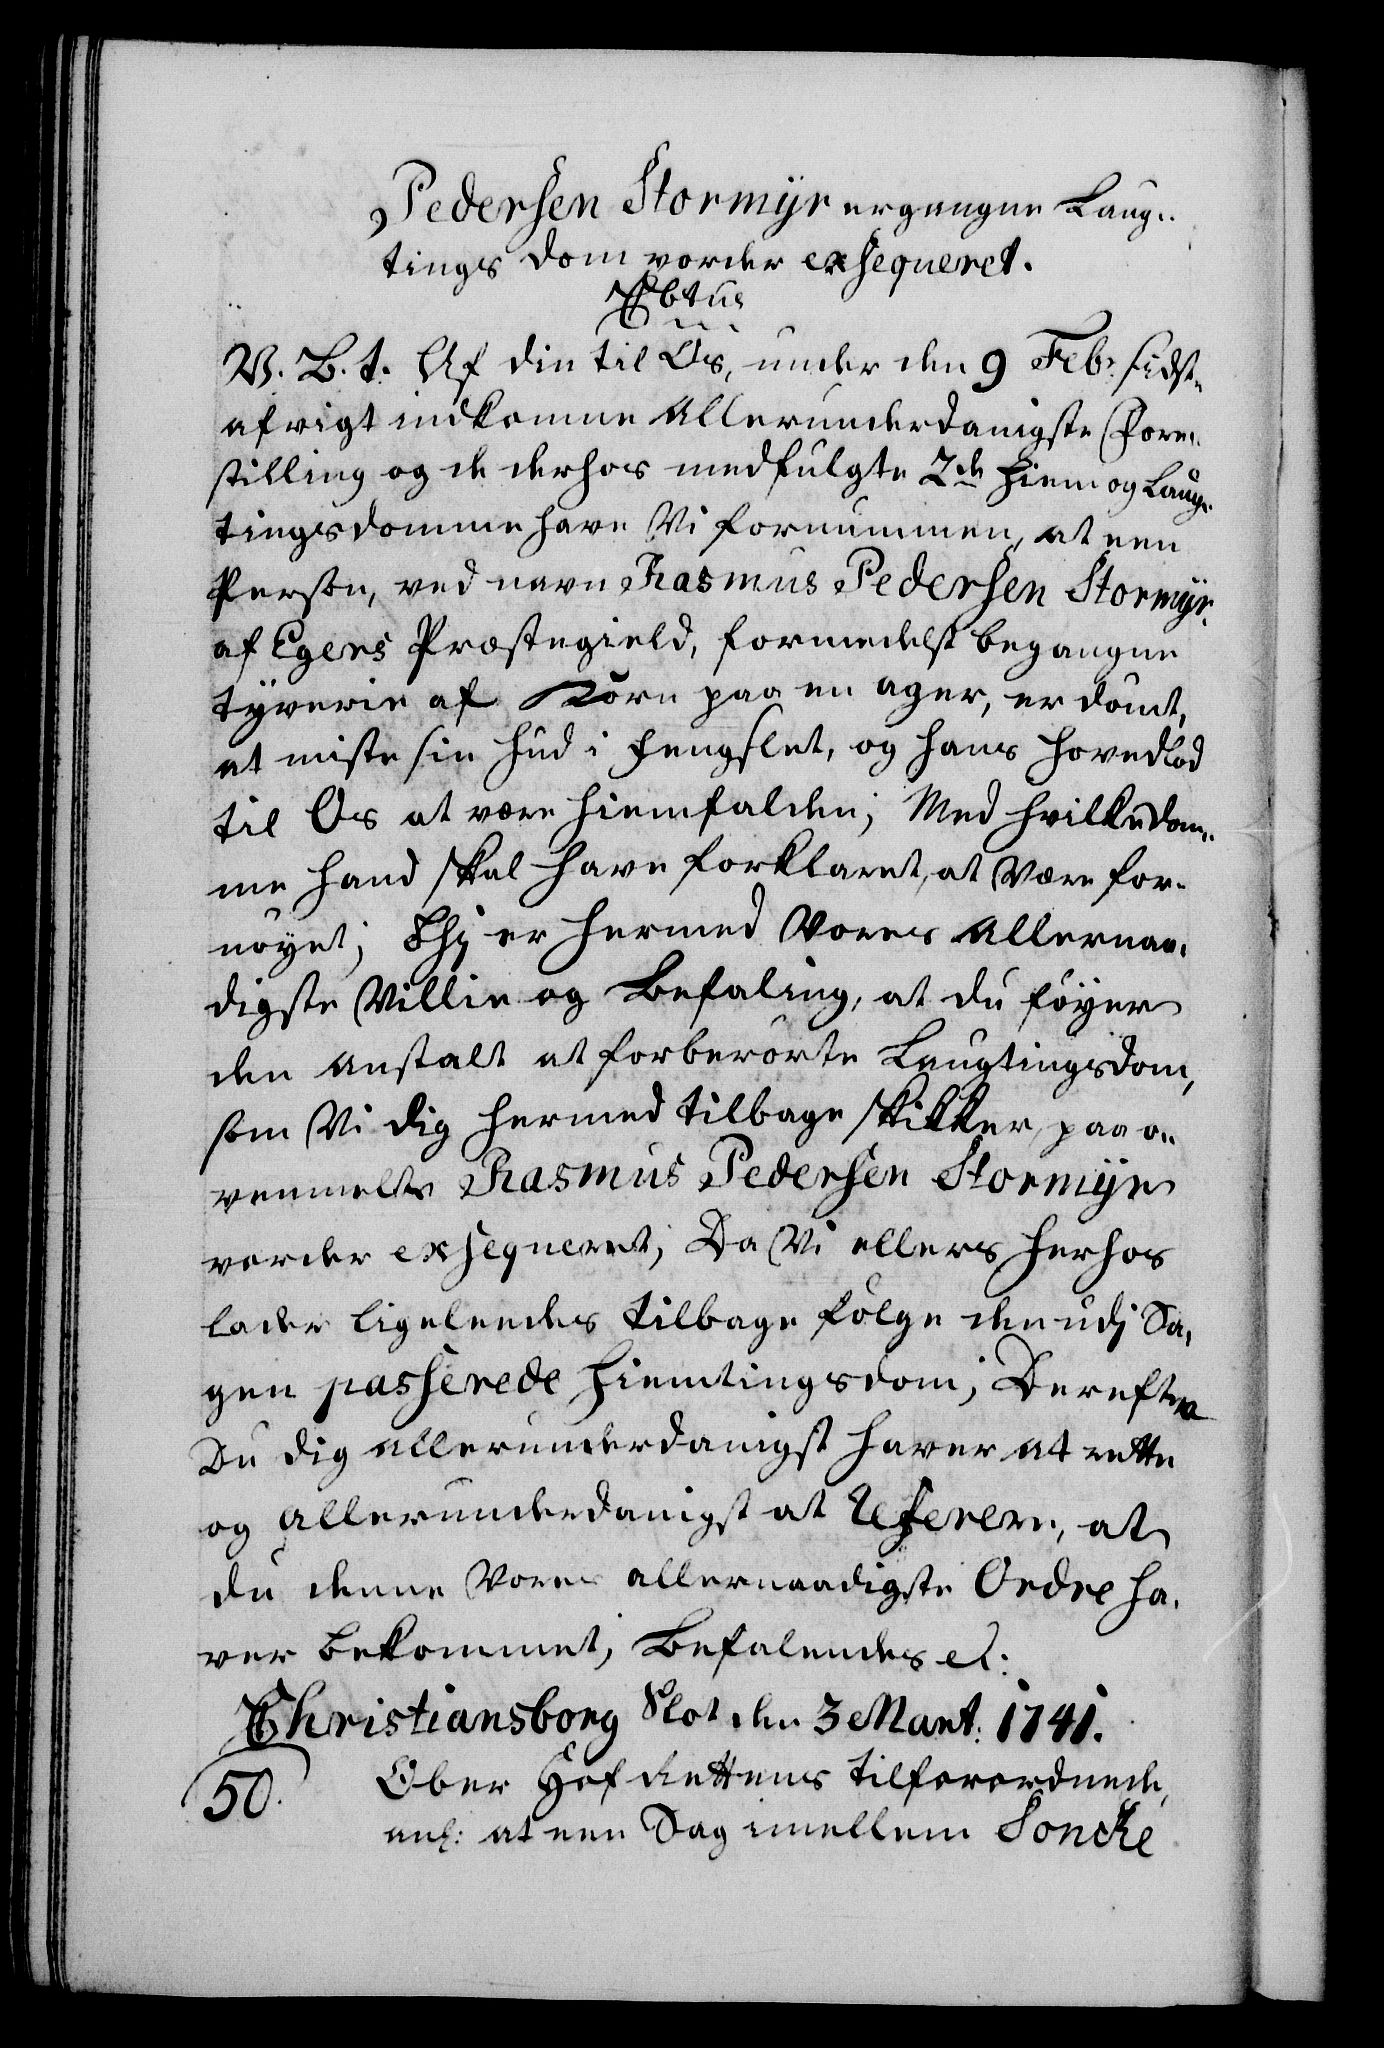 Pedersen Stormyr ergangne Laug-
tings Dom vorder exseqveret.
V. B. t. Af din til Os, under den 9 Febr: sidst
afvigt indkomne Allerunderdanigste Fore-
stilling og de derhos medfulgte 2de Hiem og Laug-
tingsdomme have Vi fornummen, at een
Person, ved navn Rasmus Pedersen Stormyr
af Egers Præstegield, formedelst begangne
tyverie af Korn paa en ager, er dömt,
at miste sin Hud i Fengslet, og hans Hovedlod
til Os at være hiemfalden; Med hvilke Dom-
me hand skal have forklaret, at være for-
nöyet; Thi er hermed Vores Allernaa-
digste Villie og Befaling, at du föyer
den Anstalt at forberörte Laugtingsdom,
som Vi dig hermed tilbage skikker, paa o-
venmelte Rasmus Pedersen Stormyr
vorder exseqveret; Da Vi ellers herhos
lader ligeleedes tilbage fölge den udj Sa-
gen passerede Hiemtingsdom; Derefter
Du dig allerunderdanigst haver at rette
og allerunderdanigst at referere, at
du denne Vores allernaadigste Ordre ha-
ver bekommet; Befalendes etc:
Christiansborg Slot den 3 Mart: 1741.
50. Ober Hof Rettens tilforordnede,
anl: at een Sag imellem Soncke